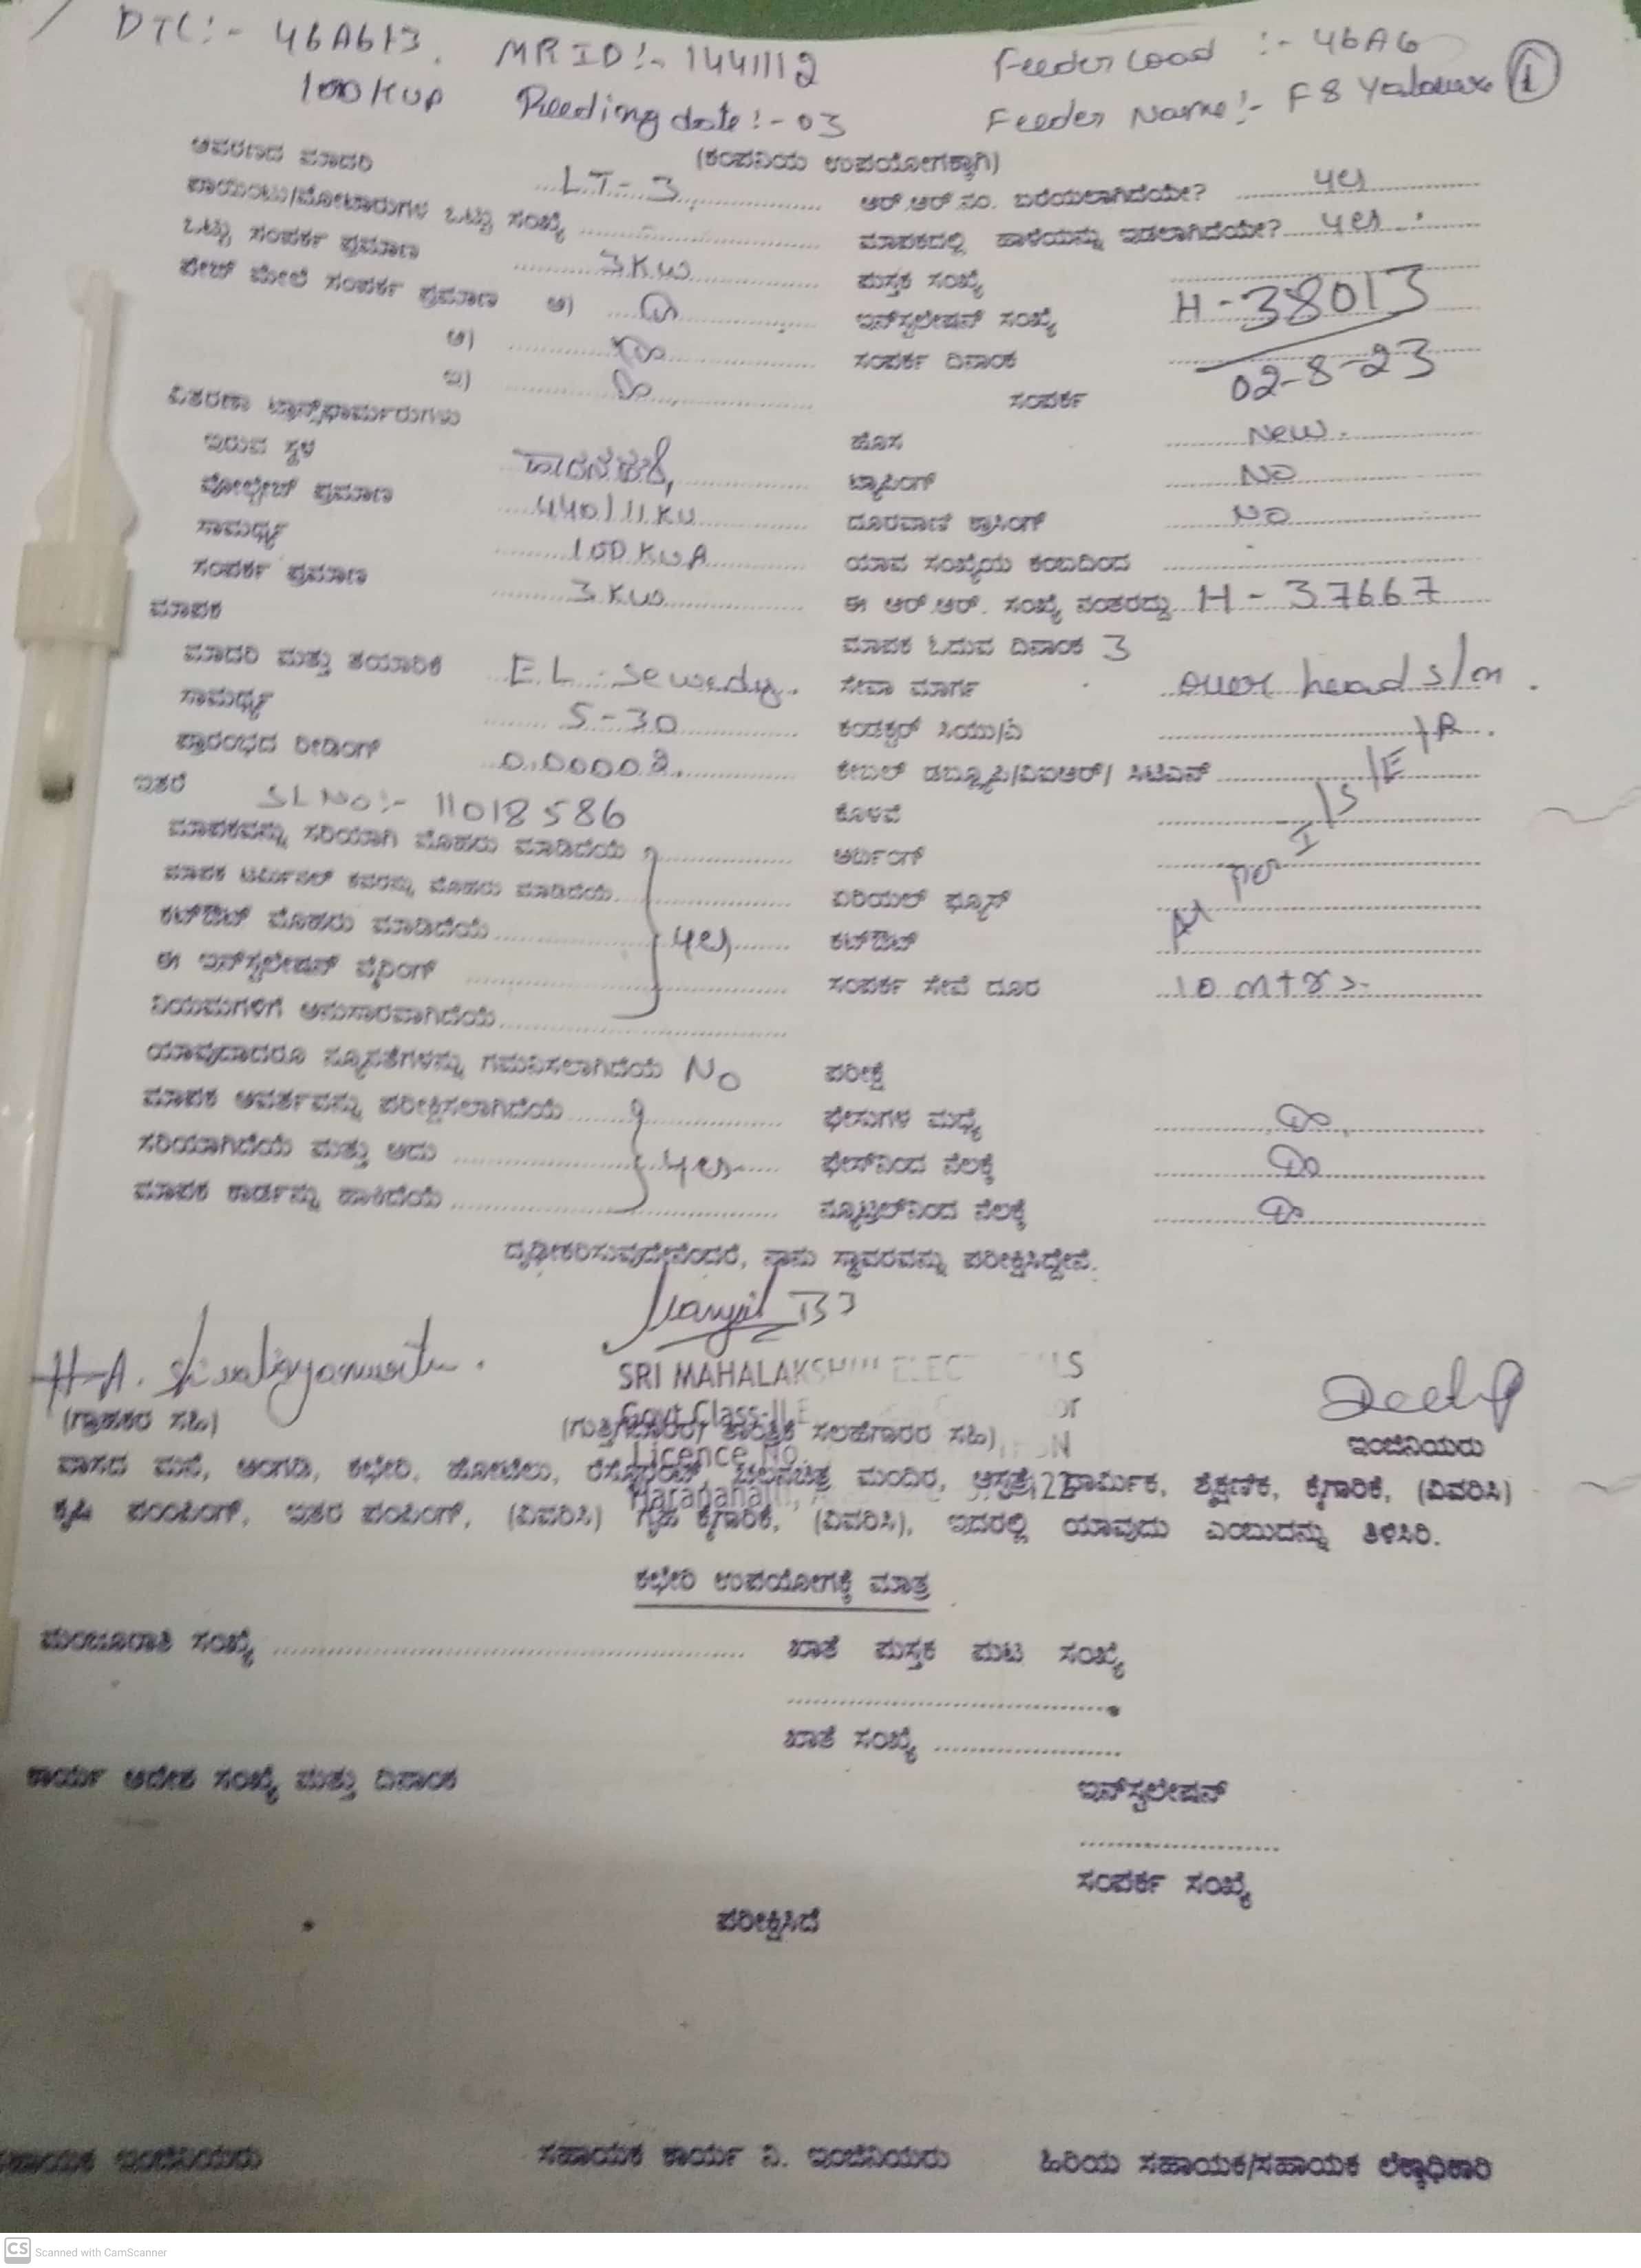 DTC:- 46A613. MR ID:- 1441112 Feeder Load :- 46A6
100 KVA Reeding date:- 03 Feeder Name:- F8 ①
(ಕಂಪನಿಯ ಉಪಯೋಗಕ್ಕಾಗಿ)
ಆವರಣದ ಮಾದರಿ LT-3 ಆರ್.ಆರ್.ನಂ. ಬರೆಯಲಾಗಿದೆಯೇ? yes
ಪಾಯಿಂಟು/ಮೋಟಾರುಗಳ ಒಟ್ಟು ಸಂಖ್ಯೆ - ಮಾಪಕದಲ್ಲಿ ಹಾಳೆಯನ್ನು ಇಡಲಾಗಿದೆಯೇ? yes.
ಒಟ್ಟು ಸಂಪರ್ಕ ಪ್ರಮಾಣ 3Kw ಪುಸ್ತಕ ಸಂಖ್ಯೆ
ಪೇಜ್ ಮೇಲೆ ಸಂಪರ್ಕ ಪ್ರಮಾಣ ಅ) ಇನ್‌ಸ್ಟಲೇಷನ್ ಸಂಖ್ಯೆ H-38013
ಆ) ಸಂಪರ್ಕ ದಿನಾಂಕ 02-8-23
ಇ) ಸಂಪರ್ಕ
ವಿತರಣಾ ಟ್ರಾನ್ಸ್‌ಫಾರ್ಮರುಗಳು
ಇರುವ ಸ್ಥಳ ಹೊಸ New.
ವೋಲ್ಟೇಜ್ ಪ್ರಮಾಣ 440/11KV ಟ್ಯಾಪಿಂಗ್ NO
ಸಾಮರ್ಥ್ಯ 100 KVA ದೂರವಾಣಿ ಕ್ರಾಸಿಂಗ್ NO
ಸಂಪರ್ಕ ಪ್ರಮಾಣ 3Kw ಯಾವ ಸಂಖ್ಯೆಯ ಕಂಬದಿಂದ -
ಮಾಪಕ ಈ ಆರ್.ಆರ್. ಸಂಖ್ಯೆ ನಂತರದ್ದು H - 37667
ಮಾದರಿ ಮತ್ತು ತಯಾರಿಕೆ EL-Sewedy. ಮಾಪಕ ಓದುವ ದಿನಾಂಕ 3
ಸಾಮರ್ಥ್ಯ 5-30 ಸೇವಾ ಮಾರ್ಗ over head s/m.
ಪ್ರಾರಂಭದ ರೀಡಿಂಗ್ ಕಂಡಕ್ಟರ್ ಸಿಯು/ಎ
ಇತರೆ SL No:- 11018586 ಕೇಬಲ್ ಡಬ್ಲ್ಯೂಪಿ/ವಿಐಆರ್/ ಸಿಟಿಎಸ್
ಮಾಪಕವನ್ನು ಸರಿಯಾಗಿ ಮೊಹರು ಮಾಡಿದೆಯೆ ಕೊಳವೆ
ಮಾಪಕ ಟರ್ಮಿನಲ್ ಕವರನ್ನು ಮೊಹರು ಮಾಡಿದೆಯೆ ಅರ್ಥಿಂಗ್
ಕಟ್‌ಔಟ್ ಮೊಹರು ಮಾಡಿದೆಯೆ yes ಏರಿಯಲ್ ಫ್ಯೂಸ್
ಈ ಇನ್‌ಸ್ಟಲೇಷನ್ ವೈರಿಂಗ್ ಕಟ್‌ಔಟ್ As per I/S/E/R.
ನಿಯಮಗಳಿಗೆ ಅನುಸಾರವಾಗಿದೆಯೆ ಸಂಪರ್ಕ ಸೇವೆ ದೂರ 10 mtrs.
ಯಾವುದಾದರೂ ನ್ಯೂನತೆಗಳನ್ನು ಗಮನಿಸಲಾಗಿದೆಯೆ No ಪರೀಕ್ಷೆ
ಮಾಪಕ ಆವರ್ತವನ್ನು ಪರೀಕ್ಷಿಸಲಾಗಿದೆಯೆ ಫೇಸುಗಳ ಮಧ್ಯೆ
ಸರಿಯಾಗಿದೆಯೆ ಮತ್ತು ಅದು yes ಫೇಸ್‌ನಿಂದ ನೆಲಕ್ಕೆ
ಮಾಪಕ ಕಾರ್ಡನ್ನು ಹಾಕಿದೆಯೆ ನ್ಯೂಟ್ರಲ್‌ನಿಂದ ನೆಲಕ್ಕೆ
ದೃಢೀಕರಿಸುವುದೇನೆಂದರೆ, ನಾನು ಸ್ಥಾವರವನ್ನು ಪರೀಕ್ಷಿಸಿದ್ದೇನೆ.
SRI MAHALAKSHMI
Govt.Class-II
Licence No.
(ಗ್ರಾಹಕರ ಸಹಿ) (ಗುತ್ತಿಗೆದಾರರ/ ತಾಂತ್ರಿಕ ಸಲಹೆಗಾರರ ಸಹಿ) ಇಂಜಿನಿಯರು
ವಾಸದ ಮನೆ, ಅಂಗಡಿ, ಕಛೇರಿ, ಹೋಟೆಲು, ರೆಸ್ಟೋರೆಂಟ್, ಚಲನಚಿತ್ರ ಮಂದಿರ, ಆಸ್ಪತ್ರೆ, ಧಾರ್ಮಿಕ, ಶೈಕ್ಷಣಿಕ, ಕೈಗಾರಿಕೆ, (ವಿವರಿಸಿ)
ಕೃಷಿ ಪಂಪಿಂಗ್, ಇತರ ಪಂಪಿಂಗ್, (ವಿವರಿಸಿ) ಗೃಹ ಕೈಗಾರಿಕೆ, (ವಿವರಿಸಿ), ಇದರಲ್ಲಿ ಯಾವುದು ಎಂಬುದನ್ನು ತಿಳಿಸಿರಿ.
ಕಛೇರಿ ಉಪಯೋಗಕ್ಕೆ ಮಾತ್ರ
ಮಂಜೂರಾತಿ ಸಂಖ್ಯೆ ಖಾತೆ ಪುಸ್ತಕ ಪುಟ ಸಂಖ್ಯೆ
ಖಾತೆ ಸಂಖ್ಯೆ
ಕಾರ್ಯ ಆದೇಶ ಸಂಖ್ಯೆ ಮತ್ತು ದಿನಾಂಕ ಇನ್‌ಸ್ಟಲೇಷನ್
ಸಂಪರ್ಕ ಸಂಖ್ಯೆ
ಪರೀಕ್ಷಿಸಿದೆ
ಸಹಾಯಕ ಇಂಜಿನಿಯರು ಸಹಾಯಕ ಕಾರ್ಯ ನಿ. ಇಂಜಿನಿಯರು ಹಿರಿಯ ಸಹಾಯಕ/ಸಹಾಯಕ ಲೆಕ್ಕಾಧಿಕಾರಿ
CS Scanned with CamScanner